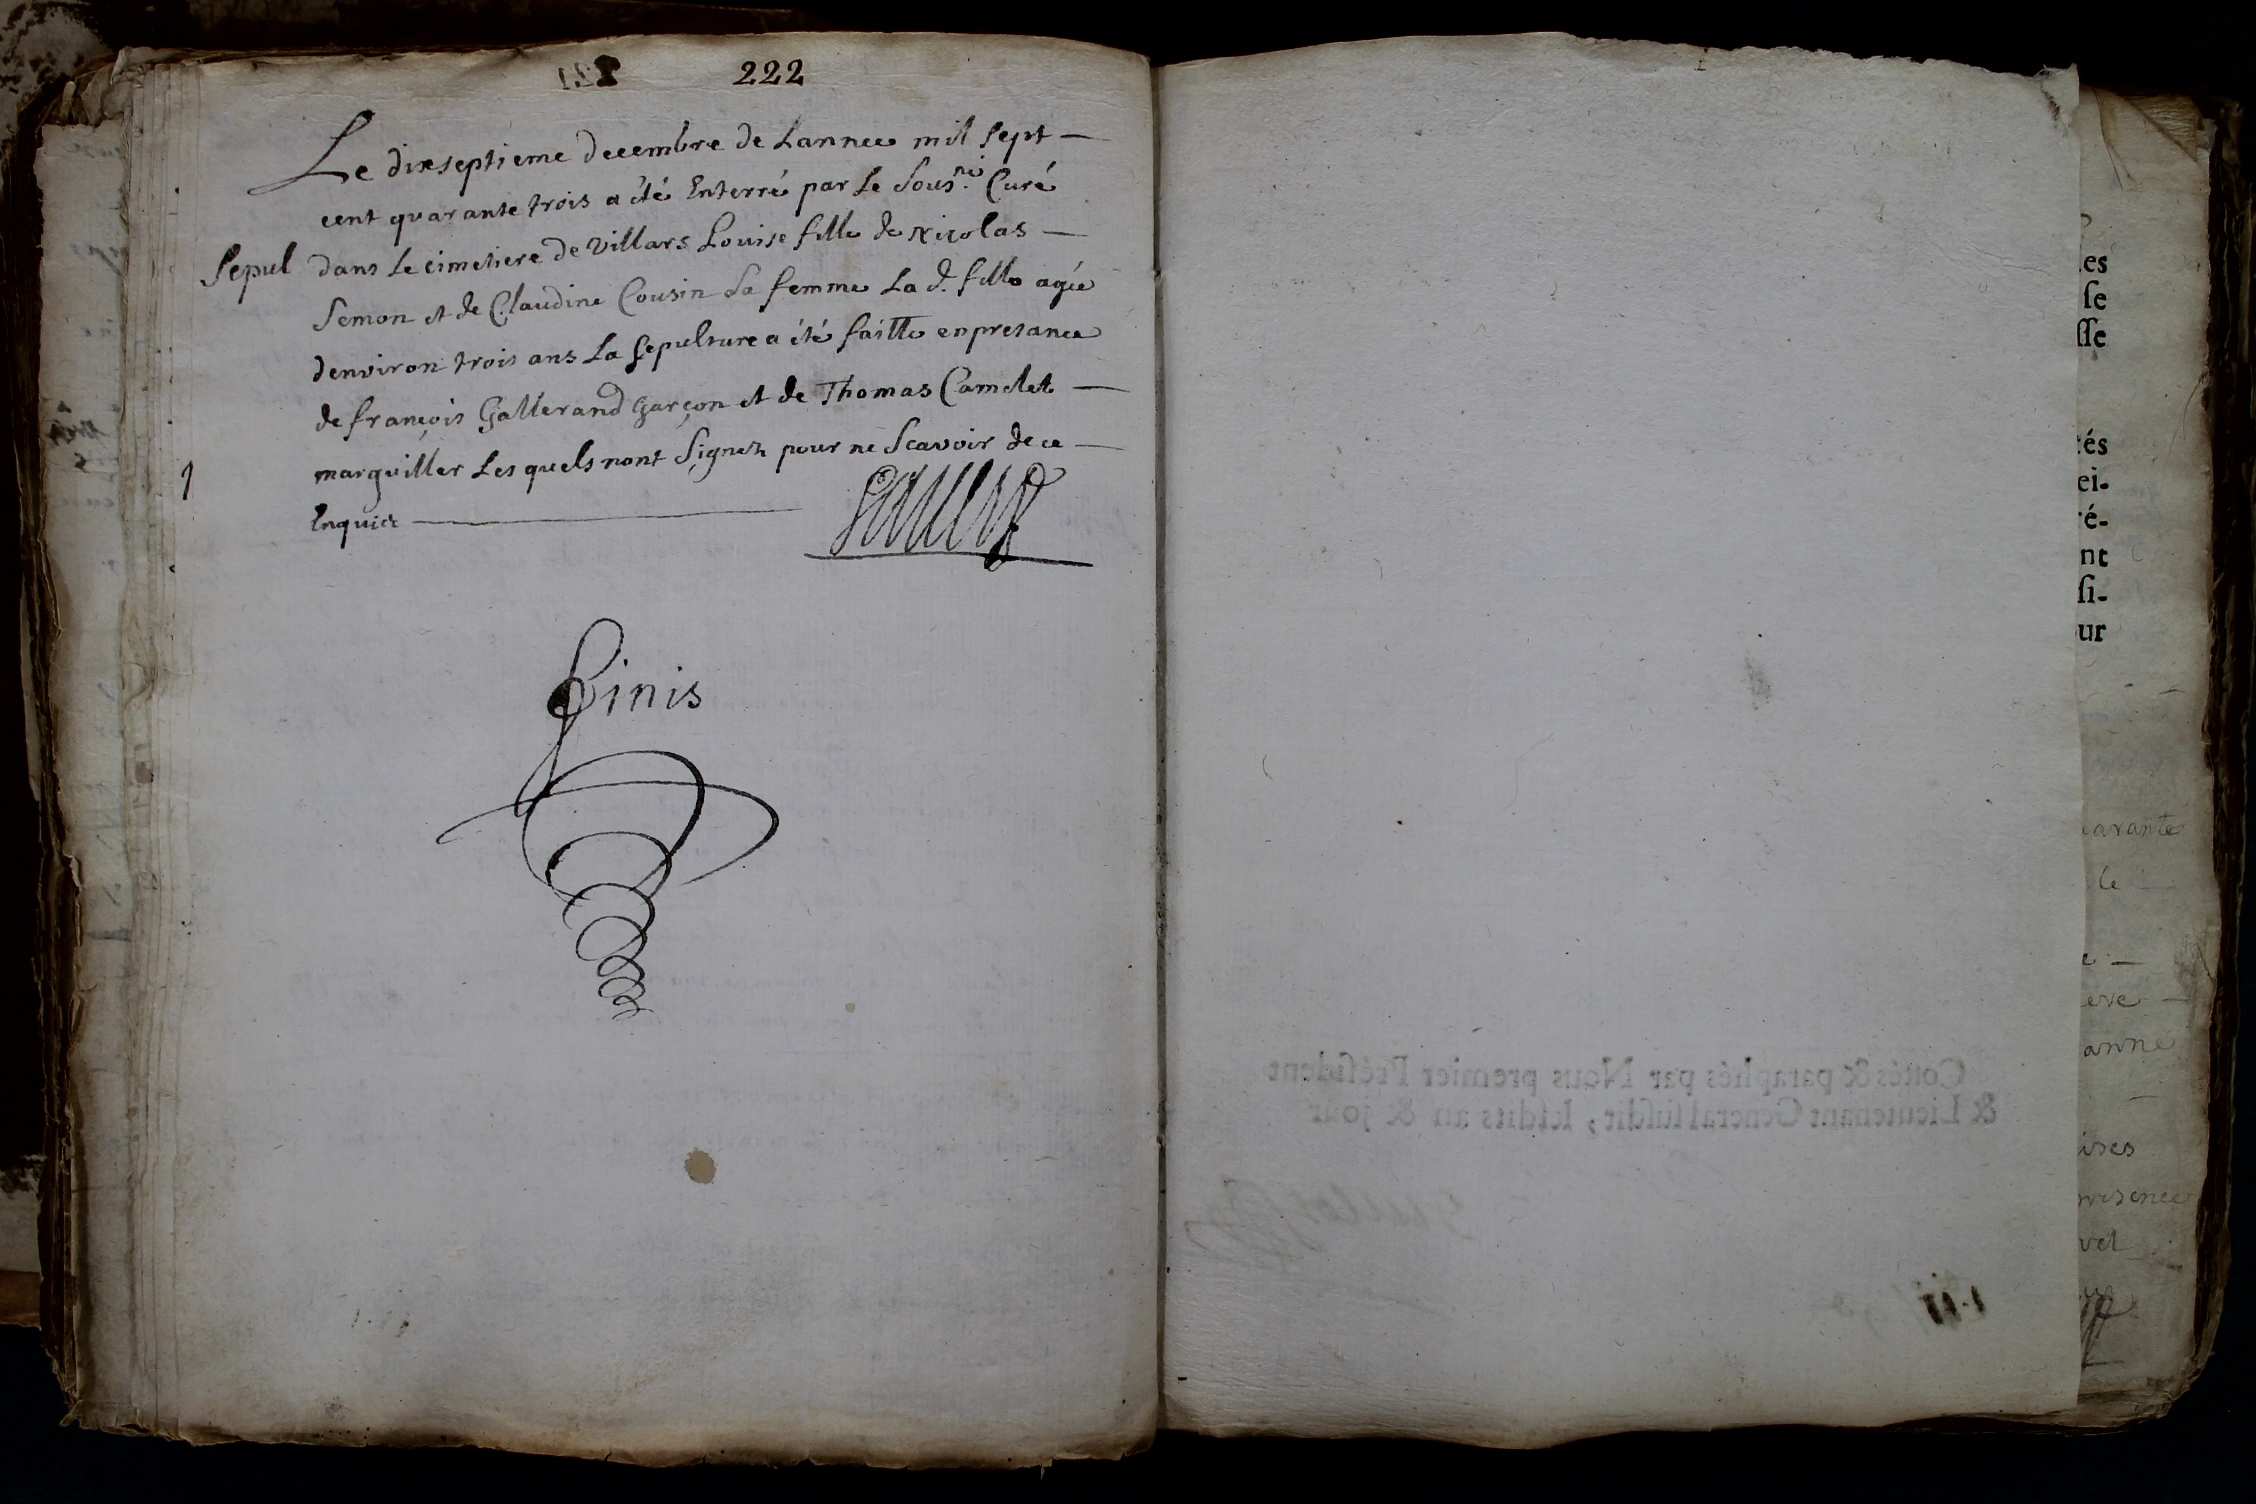 222
Le dixseptieme decembre de Lannee mil sept —
cent quarante trois a été Enterré par le Sous.né Curé
Sepul dans le cimetiere de villars Louise fille de Nicolas —
Semon et de Claudine Cousin Sa femme La d. fille agée
denviron trois ans La sepulture a été faitte en presance
de françois Gallerand garçon et de Thomas Camelet —
marguiller Les quels nont Signez pour ne Scavoir de ce —
Enquis —
finis
Cottés & paraphés par Nous premier Présidant
& Lieutenant General susdit, lesdits an & jour
es
se
sse
tés
ei-
ré-
nt
si-
ur
arante
le
eve
anne
ises